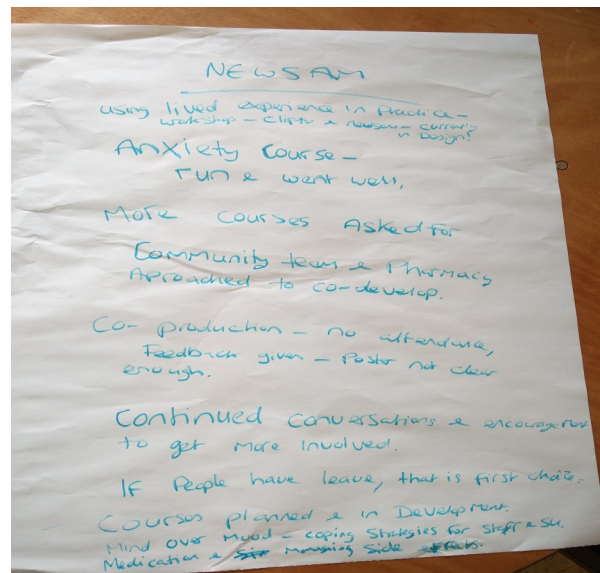 NEWSAM
using lived experience in Practice -
workshop - Clifton & newsam - currently in Design?
Anxiety Course -
run & went well.
More courses Asked for
Community team & Pharmacy
Aproached to co-develop.
Co-production - no attendance,
Feedback given - Poster not clear
enough.
Continued conversations & encouragement
to get more involved.
If People have leave, that is first choice.
Courses planned & in Development.
Mind Over Mood - coping Strategies for Staff & SU.
Medication & Managing Side effects.